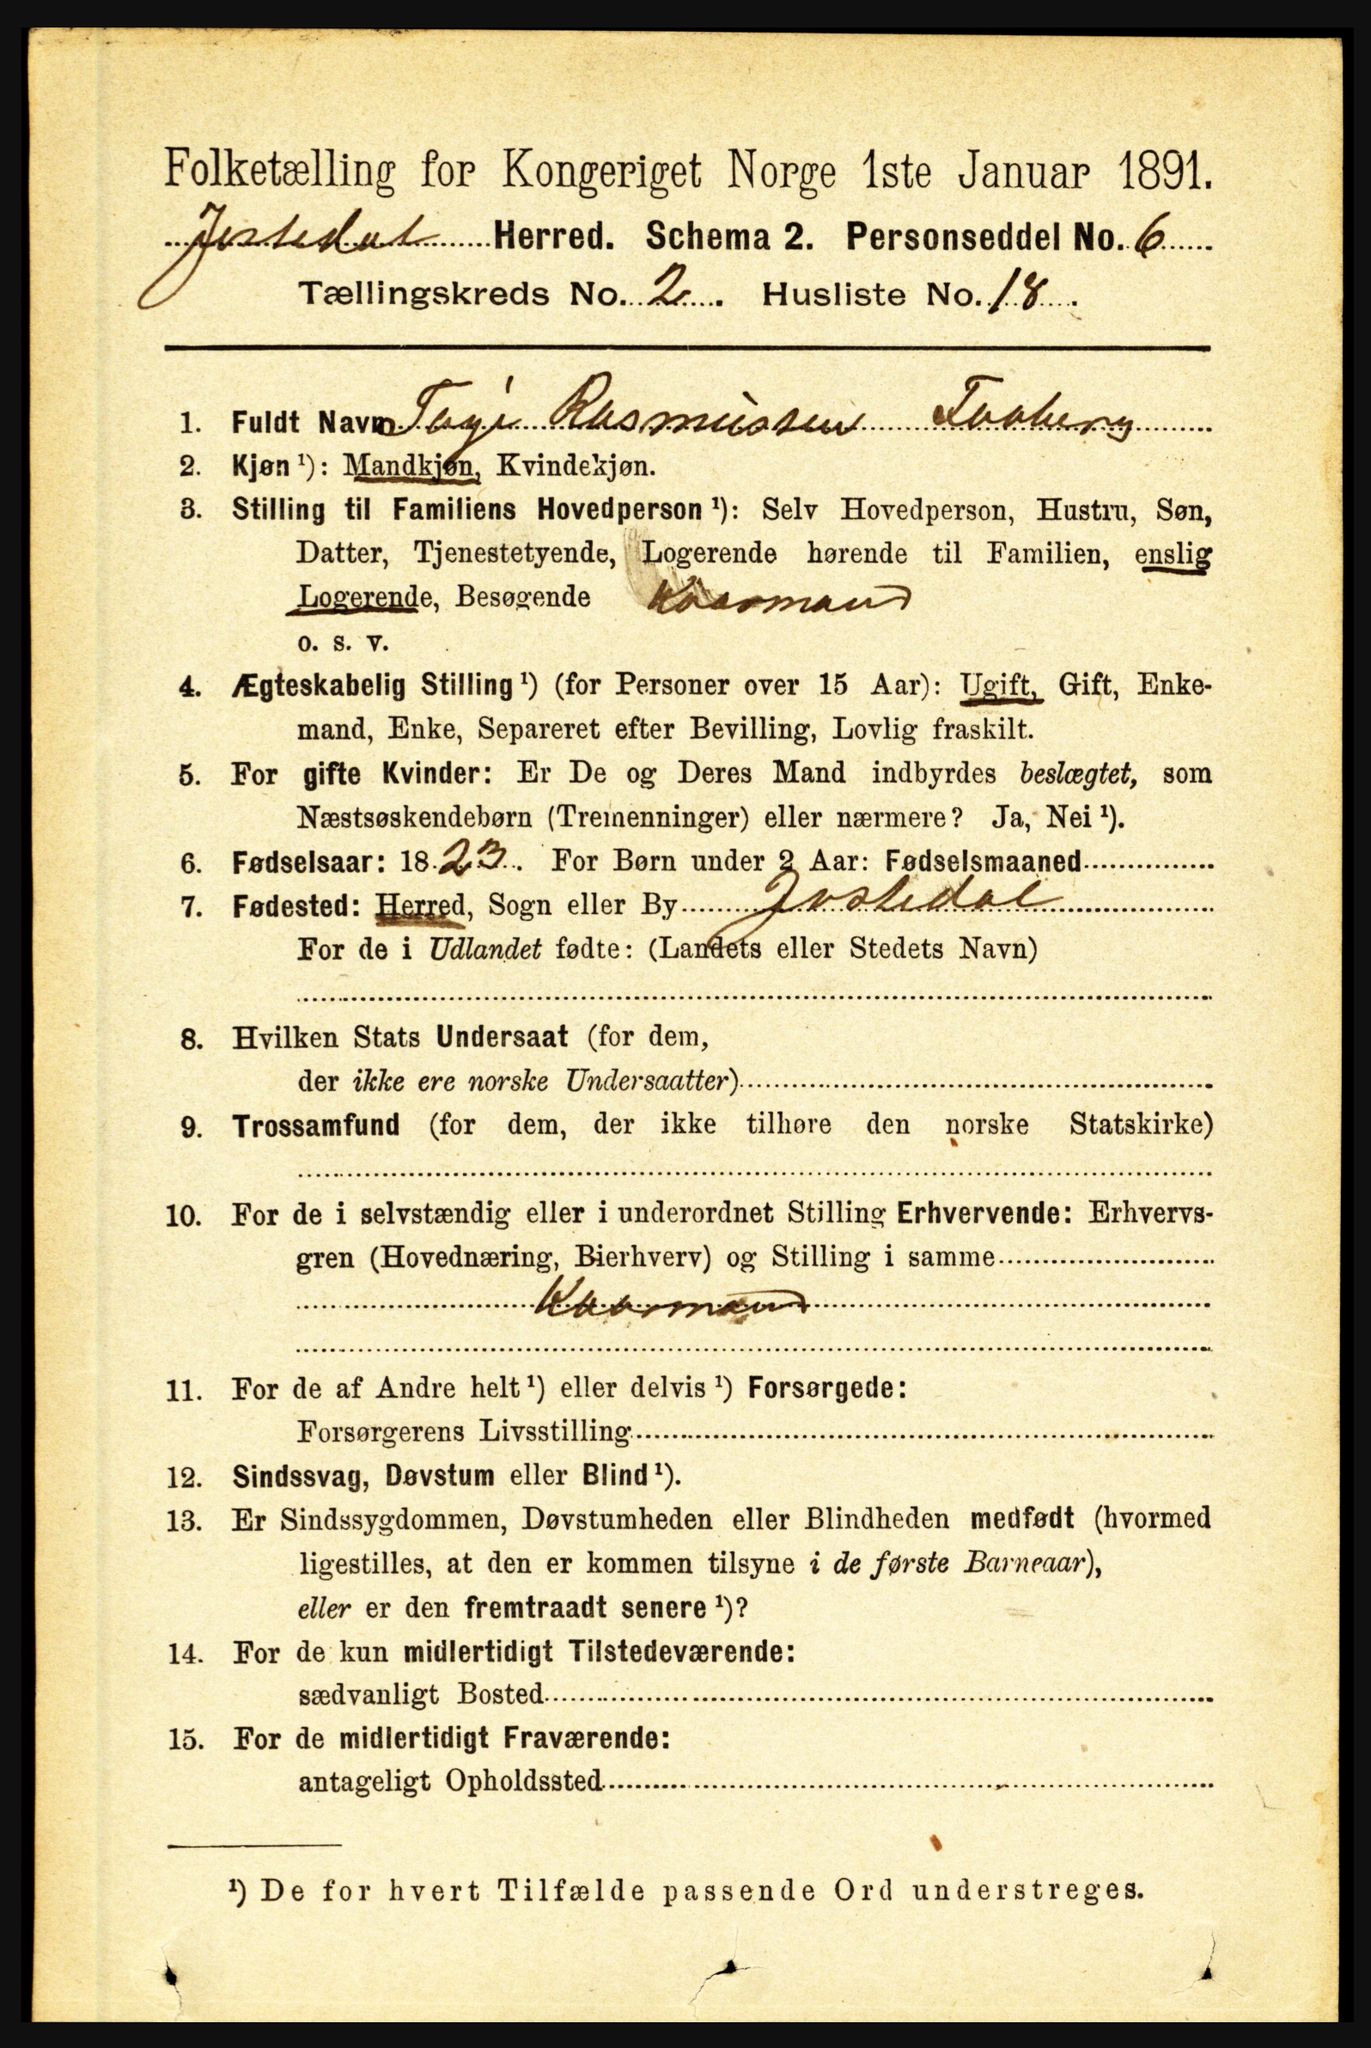 Folketælling for Kongeriget Norge 1ste Januar 1891.
Jostedal Herred. Schema 2. Personseddel No. 6
Tællingskreds No. 2. Husliste No. 18.
1. Fuldt Navn Rasmussen Faaberg
2. Kjøn ¹): Mandkjøn, Kvindekjøn.
3. Stilling til Familiens Hovedperson ¹): Selv Hovedperson, Hustru, Søn,
Datter, Tjenestetyende, Logerende hørende til Familien, enslig
Logerende, Besøgende Kaarmand
o. s. v.
4. Ægteskabelig Stilling ¹) (for Personer over 15 Aar): Ugift, Gift, Enke-
mand, Enke, Separeret efter Bevilling, Lovlig fraskilt.
5. For gifte Kvinder: Er De og Deres Mand indbyrdes beslægtet, som
Næstsøskendebørn (Tremenninger) eller nærmere? Ja, Nei ¹).
6. Fødselsaar: 1823. For Børn under 2 Aar: Fødselsmaaned
7. Fødested: Herred, Sogn eller By Jostedal
For de i Udlandet fødte: (Landets eller Stedets Navn)
8. Hvilken Stats Undersaat (for dem,
der ikke ere norske Undersaatter)
9. Trossamfund (for dem, der ikke tilhøre den norske Statskirke)
10. For de i selvstændig eller i underordnet Stilling Erhvervende: Erhvervs-
gren (Hovednæring, Bierhverv) og Stilling i samme
Kaarmand
11. For de af Andre helt ¹) eller delvis ¹) Forsørgede:
Forsørgerens Livsstilling
12. Sindssvag, Døvstum eller Blind ¹).
13. Er Sindssygdommen, Døvstumheden eller Blindheden medfødt (hvormed
ligestilles, at den er kommen tilsyne i de første Barneaar),
eller er den fremtraadt senere ¹)?
14. For de kun midlertidigt Tilstedeværende:
sædvanligt Bosted
15. For de midlertidigt Fraværende:
antageligt Opholdssted
¹) De for hvert Tilfælde passende Ord understreges.